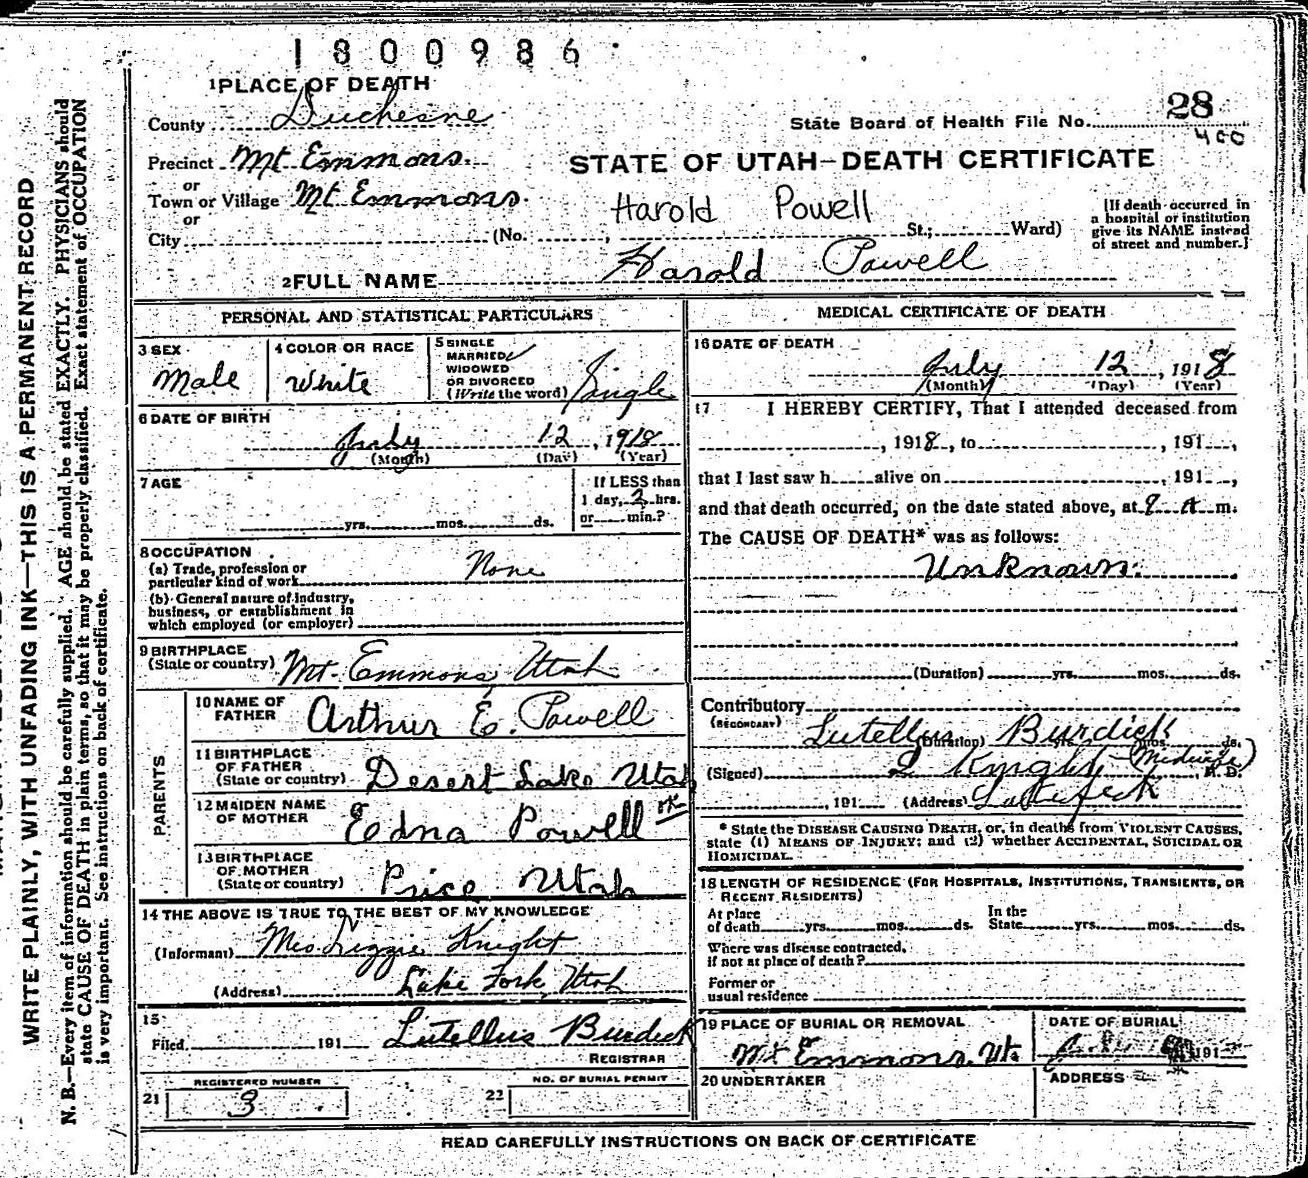 1800986
1 PLACE OF DEATH
County Duchesne
State Board of Health File No. 28
400
Precinct Mt Emmons.
STATE OF UTAH—DEATH CERTIFICATE
or
Town or Village Mt Emmons.
or
Harold Powell
City (No. , St.; Ward)
[If death occurred in
a hospital or institution
give its NAME instead
of street and number.]
2 FULL NAME Harold Powell
PERSONAL AND STATISTICAL PARTICULARS
3 SEX
Male
4 COLOR OR RACE
White
5 SINGLE
MARRIED
WIDOWED
OR DIVORCED
(Write the word) Single
6 DATE OF BIRTH
July 12, 1918
(Month) (Day) (Year)
7 AGE
yrs. mos. ds.
If LESS than
1 day, 2 hrs.
or min.?
8 OCCUPATION
(a) Trade, profession or
particular kind of work None
(b) General nature of industry,
business, or establishment in
which employed (or employer)
9 BIRTHPLACE
(State or country) Mt. Emmons, Utah
PARENTS
10 NAME OF
FATHER Arthur E. Powell
11 BIRTHPLACE
OF FATHER
(State or country) Desert Lake Utah
12 MAIDEN NAME
OF MOTHER Edna Powell ok
13 BIRTHPLACE
OF MOTHER
(State or country) Price Utah
14 THE ABOVE IS TRUE TO THE BEST OF MY KNOWLEDGE
(Informant) Mrs. Lizzie Knight
(Address) Lake Fork, Utah
15
Filed 191 Lutellus Burdick
REGISTRAR
REGISTERED NUMBER
21 3
NO. OF BURIAL PERMIT
22
MEDICAL CERTIFICATE OF DEATH
16 DATE OF DEATH
July 12, 1918
(Month) (Day) (Year)
17 I HEREBY CERTIFY, That I attended deceased from
, 1918, to , 191 ,
that I last saw h alive on , 191 ,
and that death occurred, on the date stated above, at 9 A m.
The CAUSE OF DEATH* was as follows:
Unknown.
(Duration) yrs. mos. ds.
Contributory
(SECONDARY) Lutellus Burdick
(Duration) yrs. mos. ds.
(Signed) L Knight (Midwife) M. D.
, 191 (Address)
* State the DISEASE CAUSING DEATH, or, in deaths from VIOLENT CAUSES,
state (1) MEANS OF INJURY; and (2) whether ACCIDENTAL, SUICIDAL OR
HOMICIDAL.
18 LENGTH OF RESIDENCE (FOR HOSPITALS, INSTITUTIONS, TRANSIENTS, OR
RECENT RESIDENTS)
At place
of death yrs. mos. ds.
In the
State yrs. mos. ds.
Where was disease contracted,
if not at place of death?
Former or
usual residence
19 PLACE OF BURIAL OR REMOVAL
Mt Emmons. Ut.
DATE OF BURIAL
191
20 UNDERTAKER
ADDRESS
READ CAREFULLY INSTRUCTIONS ON BACK OF CERTIFICATE
WRITE PLAINLY, WITH UNFADING INK—THIS IS A PERMANENT RECORD
N. B.—Every item of information should be carefully supplied. AGE should be stated EXACTLY. PHYSICIANS should
state CAUSE OF DEATH in plain terms, so that it may be properly classified. Exact statement of OCCUPATION
is very important. See instructions on back of certificate.